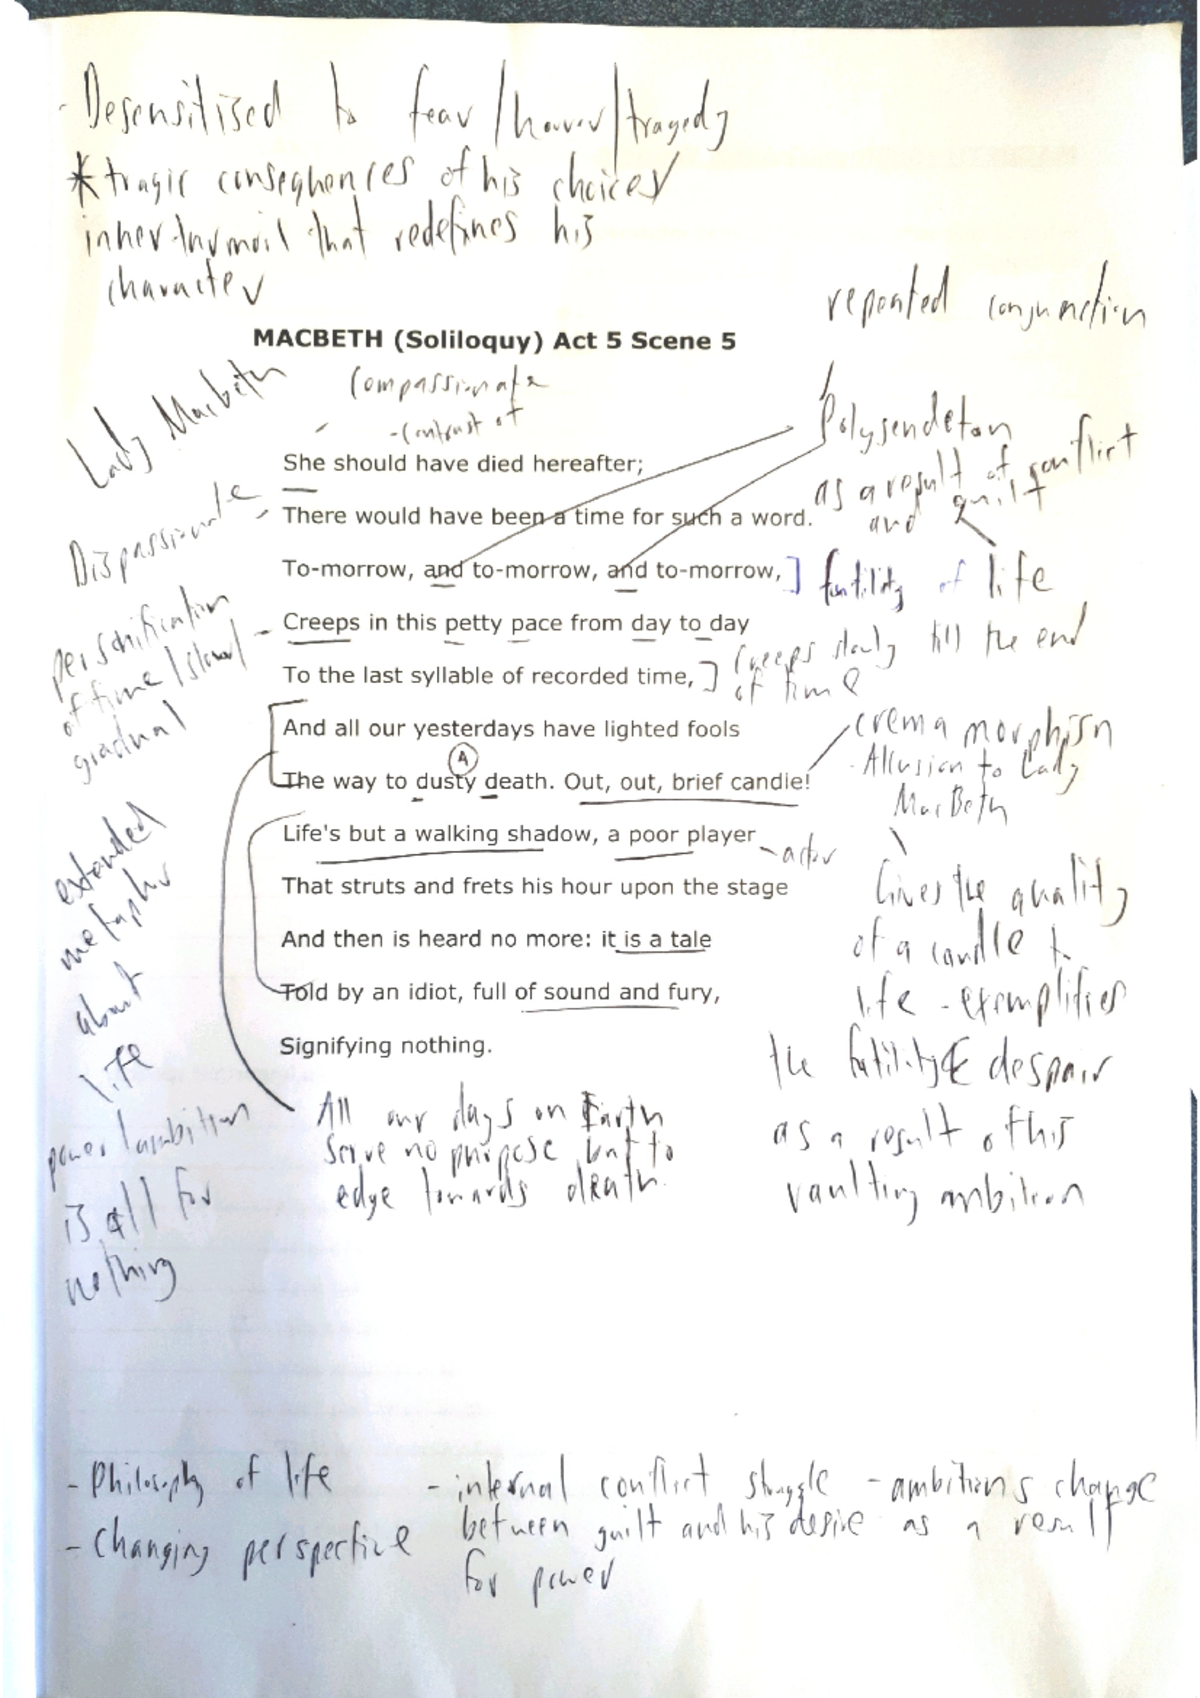 - Desensitised to fear/horror/tragedy
* tragic consequences of his choices
inner turmoil that redefines his
character
repeated conjunction
MACBETH (Soliloquy) Act 5 Scene 5
Lady Macbeth
Compassionate
- contrast of
She should have died hereafter;
Polysendeton
as a result of conflict
and guilt
Dispassionate
There would have been a time for such a word.
To-morrow, and to-morrow, and to-morrow,
futility of life
personification
of time / slow/
gradual
Creeps in this petty pace from day to day
To the last syllable of recorded time,
Creeps slowly till the end
of time
And all our yesterdays have lighted fools
A
The way to dusty death. Out, out, brief candle!
crema morphism
- Allusion to Lady
MacBeth
Life's but a walking shadow, a poor player
- actor
That struts and frets his hour upon the stage
And then is heard no more: it is a tale
Told by an idiot, full of sound and fury,
Signifying nothing.
Gives the quality
of a candle to
life - exemplifies
the futility & despair
as a result of his
vaulting ambition
extended
metaphor
about
life
power / ambition
is all for
nothing
All our days on Earth
serve no purpose but to
edge towards death.
- Philosophy of life
- Changing perspective
- internal conflict struggle
between guilt and his desire
for power
- ambitions change
as a result